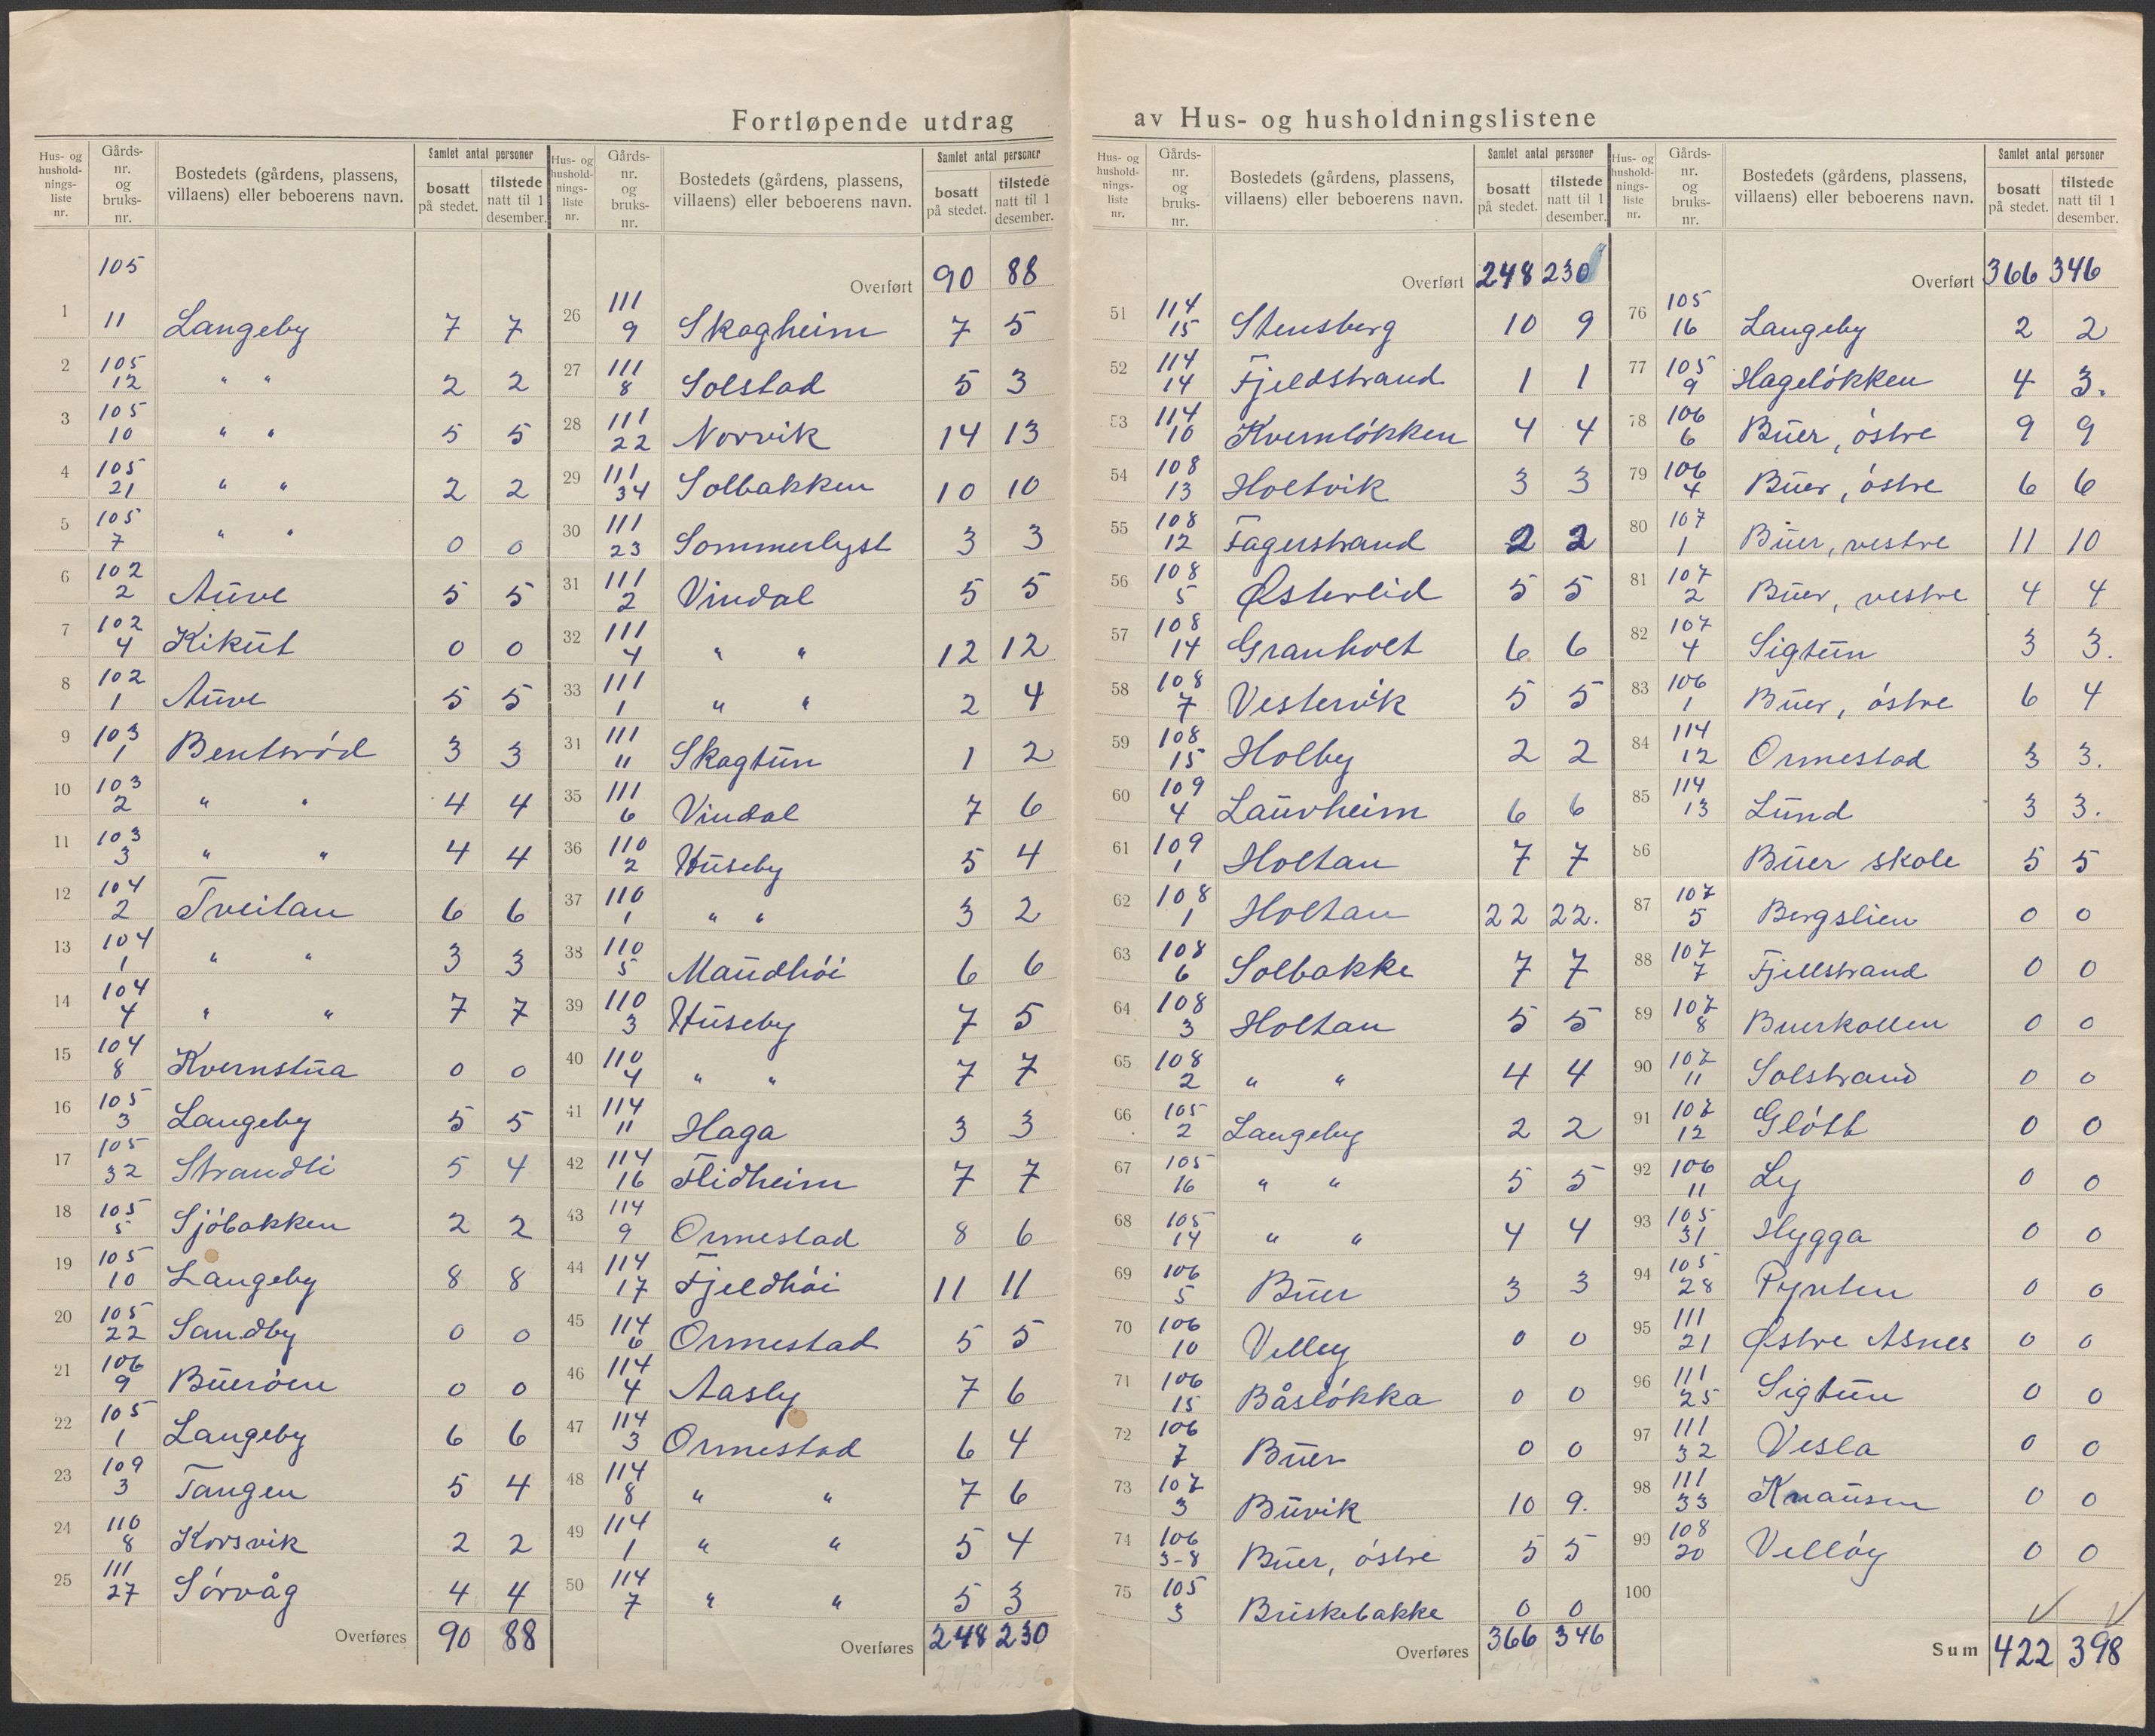 Fortløpende utdrag av Hus- og husholdningslistene
Hus- og husholdningsliste nr. | Gårds-nr. og bruks-nr. | Bostedets (gårdens, plassens, villaens) eller beboerens navn. | Samlet antal personer: bosatt på stedet. | tilstede natt til 1 desember.
1 105 11 Langeby 7 7
2 105 12 " " 2 2
3 105 10 " " 5 5
4 105 21 " " 2 2
5 105 7 " " 0 0
6 102 2 Auve 5 5
7 102 4 Kikut 0 0
8 102 1 Auve 5 5
9 103 1 Bentsrød 3 3
10 103 2 " " 4 4
11 103 3 " " 4 4
12 104 2 Tveitan 6 6
13 104 1 " " 3 3
14 104 4 " " 7 7
15 104 8 Kvernstua 0 0
16 105 3 Langeby 5 5
17 105 32 Strandli 5 4
18 105 5 Sjøbakken 2 2
19 105 10 Langeby 8 8
20 105 22 Sandby 0 0
21 106 9 Buerøen 0 0
22 105 1 Langeby 6 6
23 109 3 Tangen 5 4
24 110 8 Korsvik 2 2
25 111 27 Sørvåg 4 4
Overføres 90 88
Hus- og husholdningsliste nr. | Gårds-nr. og bruks-nr. | Bostedets (gårdens, plassens, villaens) eller beboerens navn. | Samlet antal personer: bosatt på stedet. | tilstede natt til 1 desember.
Overført 90 88
26 111 9 Skogheim 7 5
27 111 8 Solstad 5 3
28 111 22 Norvik 14 13
29 111 34 Solbakken 10 10
30 111 23 Sommerlyst 3 3
31 111 2 Vindal 5 5
32 111 4 " " 12 12
33 111 1 " " 2 4
34 111 11 Skogtun 1 2
35 111 6 Vindal 7 6
36 110 2 Huseby 5 4
37 110 1 " " 3 2
38 110 5 Maudhøi 6 6
39 110 3 Huseby 7 5
40 110 4 " " 7 7
41 114 11 Haga 3 3
42 114 16 Flidheim 7 7
43 114 9 Ormestad 8 6
44 114 17 Fjeldhøi 11 11
45 114 6 Ormestad 5 5
46 114 4 Aasly 7 6
47 114 3 Ormestad 6 4
48 114 8 " " 7 6
49 114 1 " " 5 4
50 114 7 " " 5 3
Overføres 248 230
Hus- og husholdningsliste nr. | Gårds-nr. og bruks-nr. | Bostedets (gårdens, plassens, villaens) eller beboerens navn. | Samlet antal personer: bosatt på stedet. | tilstede natt til 1 desember.
Overført 248 230
51 114 15 Stensberg 10 9
52 114 14 Fjeldstrand 1 1
53 114 10 Kvernløkken 4 4
54 108 13 Holtvik 3 3
55 108 12 Fagerstrand 2 2
56 108 5 Østerlid 5 5
57 108 14 Granholt 6 6
58 108 7 Vestervik 5 5
59 108 15 Holby 2 2
60 109 4 Laurheim 6 6
61 109 1 Holtan 7 7
62 108 1 Holtan 22 22.
63 108 6 Solbakke 7 7
64 108 3 Holtan 5 5
65 108 2 " " 4 4
66 105 2 Langeby 2 2
67 105 16 " " 5 5
68 105 14 " " 4 4
69 106 5 Buer 3 3
70 106 10 Velley 0 0
71 106 15 Båsløkka 0 0
72 106 7 Buer 0 0
73 107 3 Buvik 10 9.
74 106 3-8 Buer, østre 5 5
75 105 3 Briskebakke 0 0
Overføres 366 346
Hus- og husholdningsliste nr. | Gårds-nr. og bruks-nr. | Bostedets (gårdens, plassens, villaens) eller beboerens navn. | Samlet antal personer: bosatt på stedet. | tilstede natt til 1 desember.
Overført 366 346
76 105 16 Langeby 2 2
77 105 9 Hageløkken 4 3.
78 106 6 Buer, østre 9 9
79 106 4 Buer, østre 6 6
80 107 1 Buer, vestre 11 10
81 107 2 Buer, vestre 4 4
82 107 4 Sigtun 3 3.
83 106 1 Buer, østre 6 4
84 114 12 Ormestad 3 3.
85 114 13 Lund 3 3.
86 Buer skole 5 5
87 107 5 Bergslien 0 0
88 107 7 Fjellstrand 0 0
89 107 8 Buerkollen 0 0
90 107 11 Solstrand 0 0
91 107 12 Gløtt 0 0
92 106 11 Ly 0 0
93 105 31 Hygga 0 0
94 105 28 Pynten 0 0
95 111 21 Østre Asnes 0 0
96 111 25 Sigtun 0 0
97 111 32 Vesla 0 0
98 111 33 Knausen 0 0
99 108 20 Velløy 0 0
100
Sum 422 398